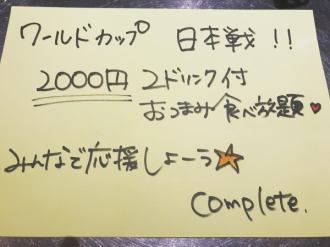 ワールドカップ 日本戦!!
2000円 2ドリンク付
おつまみ食べ放題♥
みんなで応援しよーう★
complete.